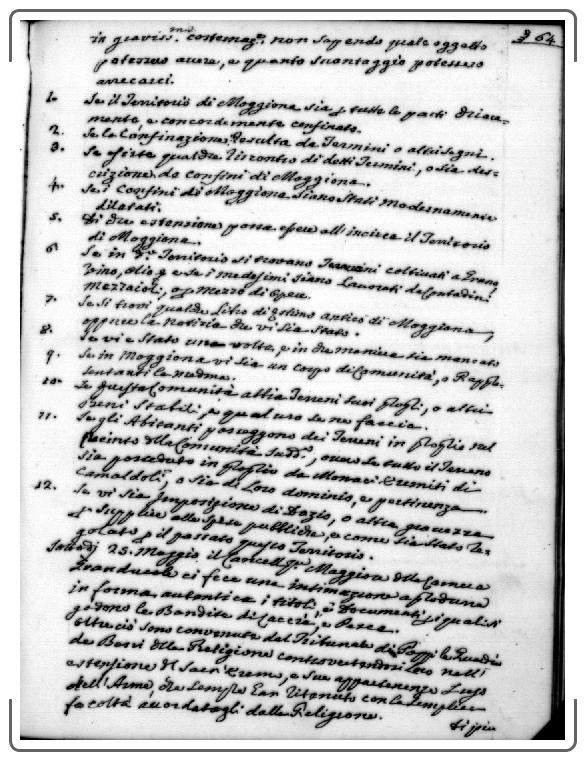 64
in graviss.mo costernaz.e non sapendo quale oggetto
potessero avere, e quanto svantaggio potessero
arrecarci.
1. Se il Territorio di Moggiona sia p. tutte le parti
mente, e concordemente confinato.
2. Se la Confinazione, resulta da Termini o altri Segni.
3. Se esiste qualche riscontro di detti Termini, o sia des-
crizione de confini di Moggiona.
4. Se i Confini di Moggiona siano stati modernamente
dilatati.
5. Di che estensione possa essere all'incirca il Territorio
di Moggiona.
6. Se in d.o Territorio si trovano Terreni coltivati a Grano
Vino, Olio & e se i medesimi siano Lavorati da Contadini
Mezzaioli, o p. Mezzo di Opere.
7. Se si trovi qualche Libro di Estimo antico di Moggiona,
oppure la Notizia che vi sia Stato.
8. Se vi è Stato una volta, e in che maniera sia mancato
9. Se in Moggiona vi sia un Corpo di Comunità, o Rappre-
sentanti la medma.
10. Se questa Comunità abbia Terreni suoi proprj, o altri
Beni Stabili, e qual uso se ne faccia.
11. Se gli Abitanti posseggono dei Terreni in proprio nel
recinto della Comunità sudd.a, ovvero se tutto il Terreno
sia posseduto in proprio da Monaci Eremiti di
Camaldoli, o sia di Loro dominio, e pertinenza.
12. Se vi sia Imposizione di Dazio, o altra gravezza
p. supplire alle spese pubbliche, e come sia stato re-
golato p. il passato questo Territorio.
25. Maggio il Cancell.e Maggiore della Camera
Granducale ci fece una intimazione a produrre
in forma autentica i titoli, e Documenti p. i quali si
godono le Bandite di Caccia, e Pesca.
Oltre ciò sono convenute del Tribunale di Poppi le Guardie
de Beni della Religione controvertendosi Loro nell'
estensione del Sacr'Eremo, e sue appartenenze l'uso
dell'Armi, che sempre han ritenuto con la semplice
facoltà accordatagli dalla Religione.
di più